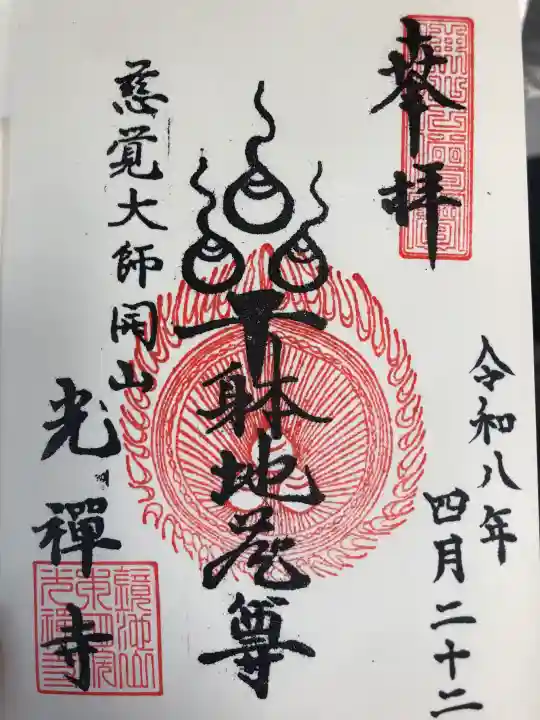 奉拝
令和八年
四月二十二
千躰地蔵尊
慈覚大師開山
光禪寺